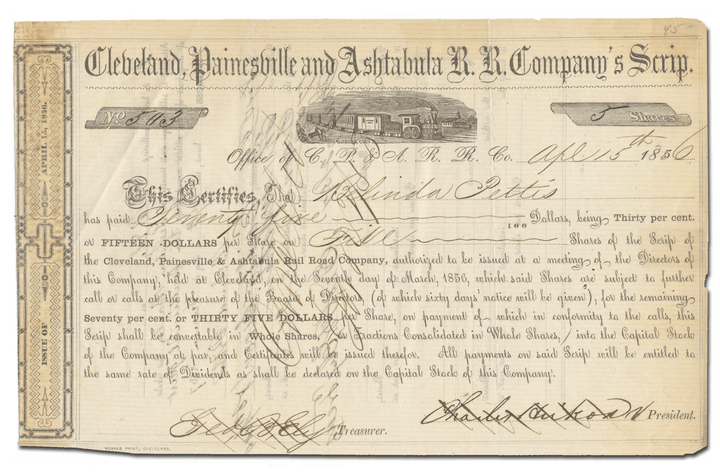 45
Cleveland, Painesville and Ashtabula R. R. Company's Scrip.
No. 543 5 Shares
Office of C., P. & A. R. R. Co. Apl 15th 1856
This Certifies, That Belinda Pettis
has paid Seventy five 100 Dollars, being Thirty per cent.
or FIFTEEN DOLLARS per Share on Five Shares of the Scrip of
the Cleveland, Painesville & Ashtabula Rail Road Company, authorized to be issued at a meeting of the Directors of
this Company, held at Cleveland, on the Seventh day of March, 1856, which said Shares are subject to further
call or calls at the pleasure of the Board of Directors, (of which sixty days' notice will be given), for the remaining
Seventy per cent. or THIRTY FIVE DOLLARS per Share, on payment of which in conformity to the calls, this
Scrip shall be convertable in Whole Shares, (or Fractions Consolidated in Whole Shares,) into the Capital Stock
of the Company at par, and Certificates will be issued therefor. All payments on said Scrip will be entitled to
the same rate of Dividends as shall be declared on the Capital Stock of this Company.
Geo. B. Ely Treasurer. President.
ISSUE OF APRIL 15, 1856.